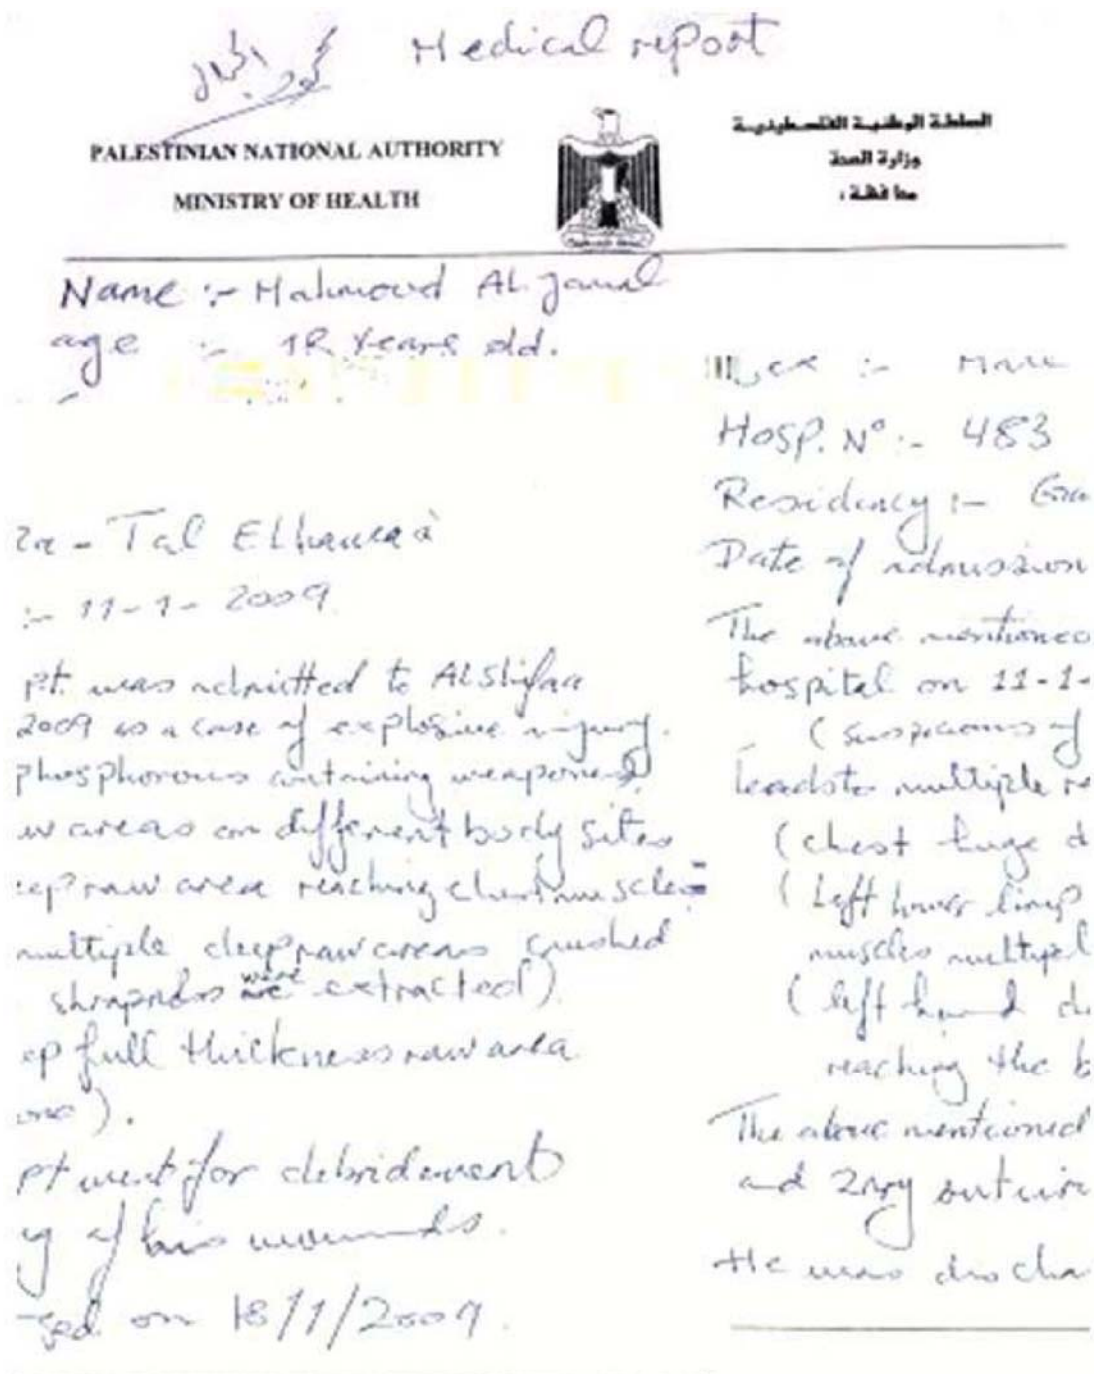 Medical report
محمود الجمال
PALESTINIAN NATIONAL AUTHORITY
MINISTRY OF HEALTH
السلطة الوطنية الفلسطينية
وزارة الصحة
محافظة :
Name :- Mahmoud AL Jamal
age :- years old.
za - Tal
:- 11-1-2009
pt. was admitted to AlShifaa
2009 as a case of explosive injury.
phosphorous containing weapones)
aw areas on different body sites
eep raw area reaching chest muscles
multiple deep raw areas crushed
were extracted)
ep full thickness raw area
one).
pt went for debridement
g of his wounds.
ged on 18/1/2009.
sex :- Male
Hosp. N° :- 483
Residency :- Ga
Date of admission
The above mentioned
hospital on 11-1-
(suspicions of
leads to multiple ra
(chest huge d
(Left lower limp
muscles multipl
(left hand de
reaching the b
The above mentioned
and 2nry suturin
He was dischar